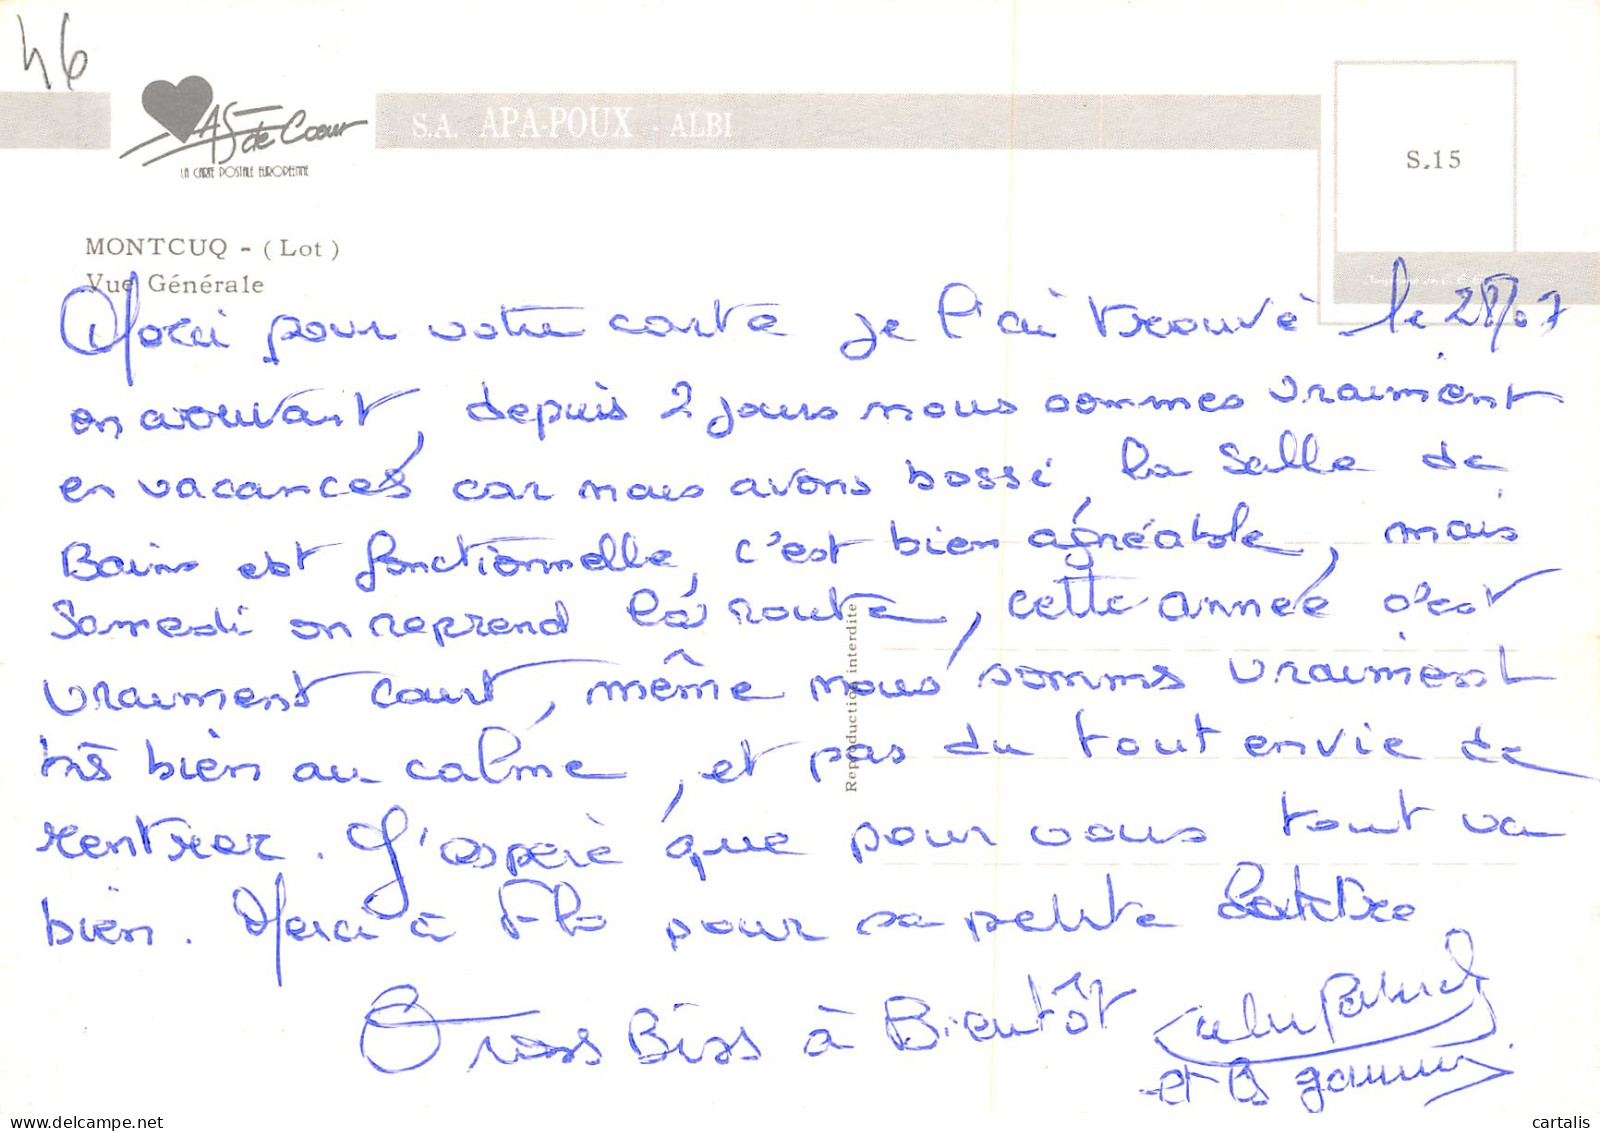 46
AS de Coeur
LA CARTE POSTALE EUROPEENNE
S.A. APA-POUX - ALBI
S.15
MONTCUQ - (Lot)
Vue Générale
Merci pour votre carte je l'ai trouvé le 28/07
en arrivant, depuis 2 jours nous sommes vraiment
en vacances car nous avons bossé, la salle de
Bains est fonctionnelle, c'est bien agréable, mais
Samedi on reprend la route, cette année c'est
vraiment court, même nous somms vraiment
très bien au calme, et pas du tout envie de
rentrer. J'espère que pour vous tout va
bien. Merci à Flo pour sa petite lettre
Gross Biss à Bientôt
et les gamins
Reproduction interdite
cartalis